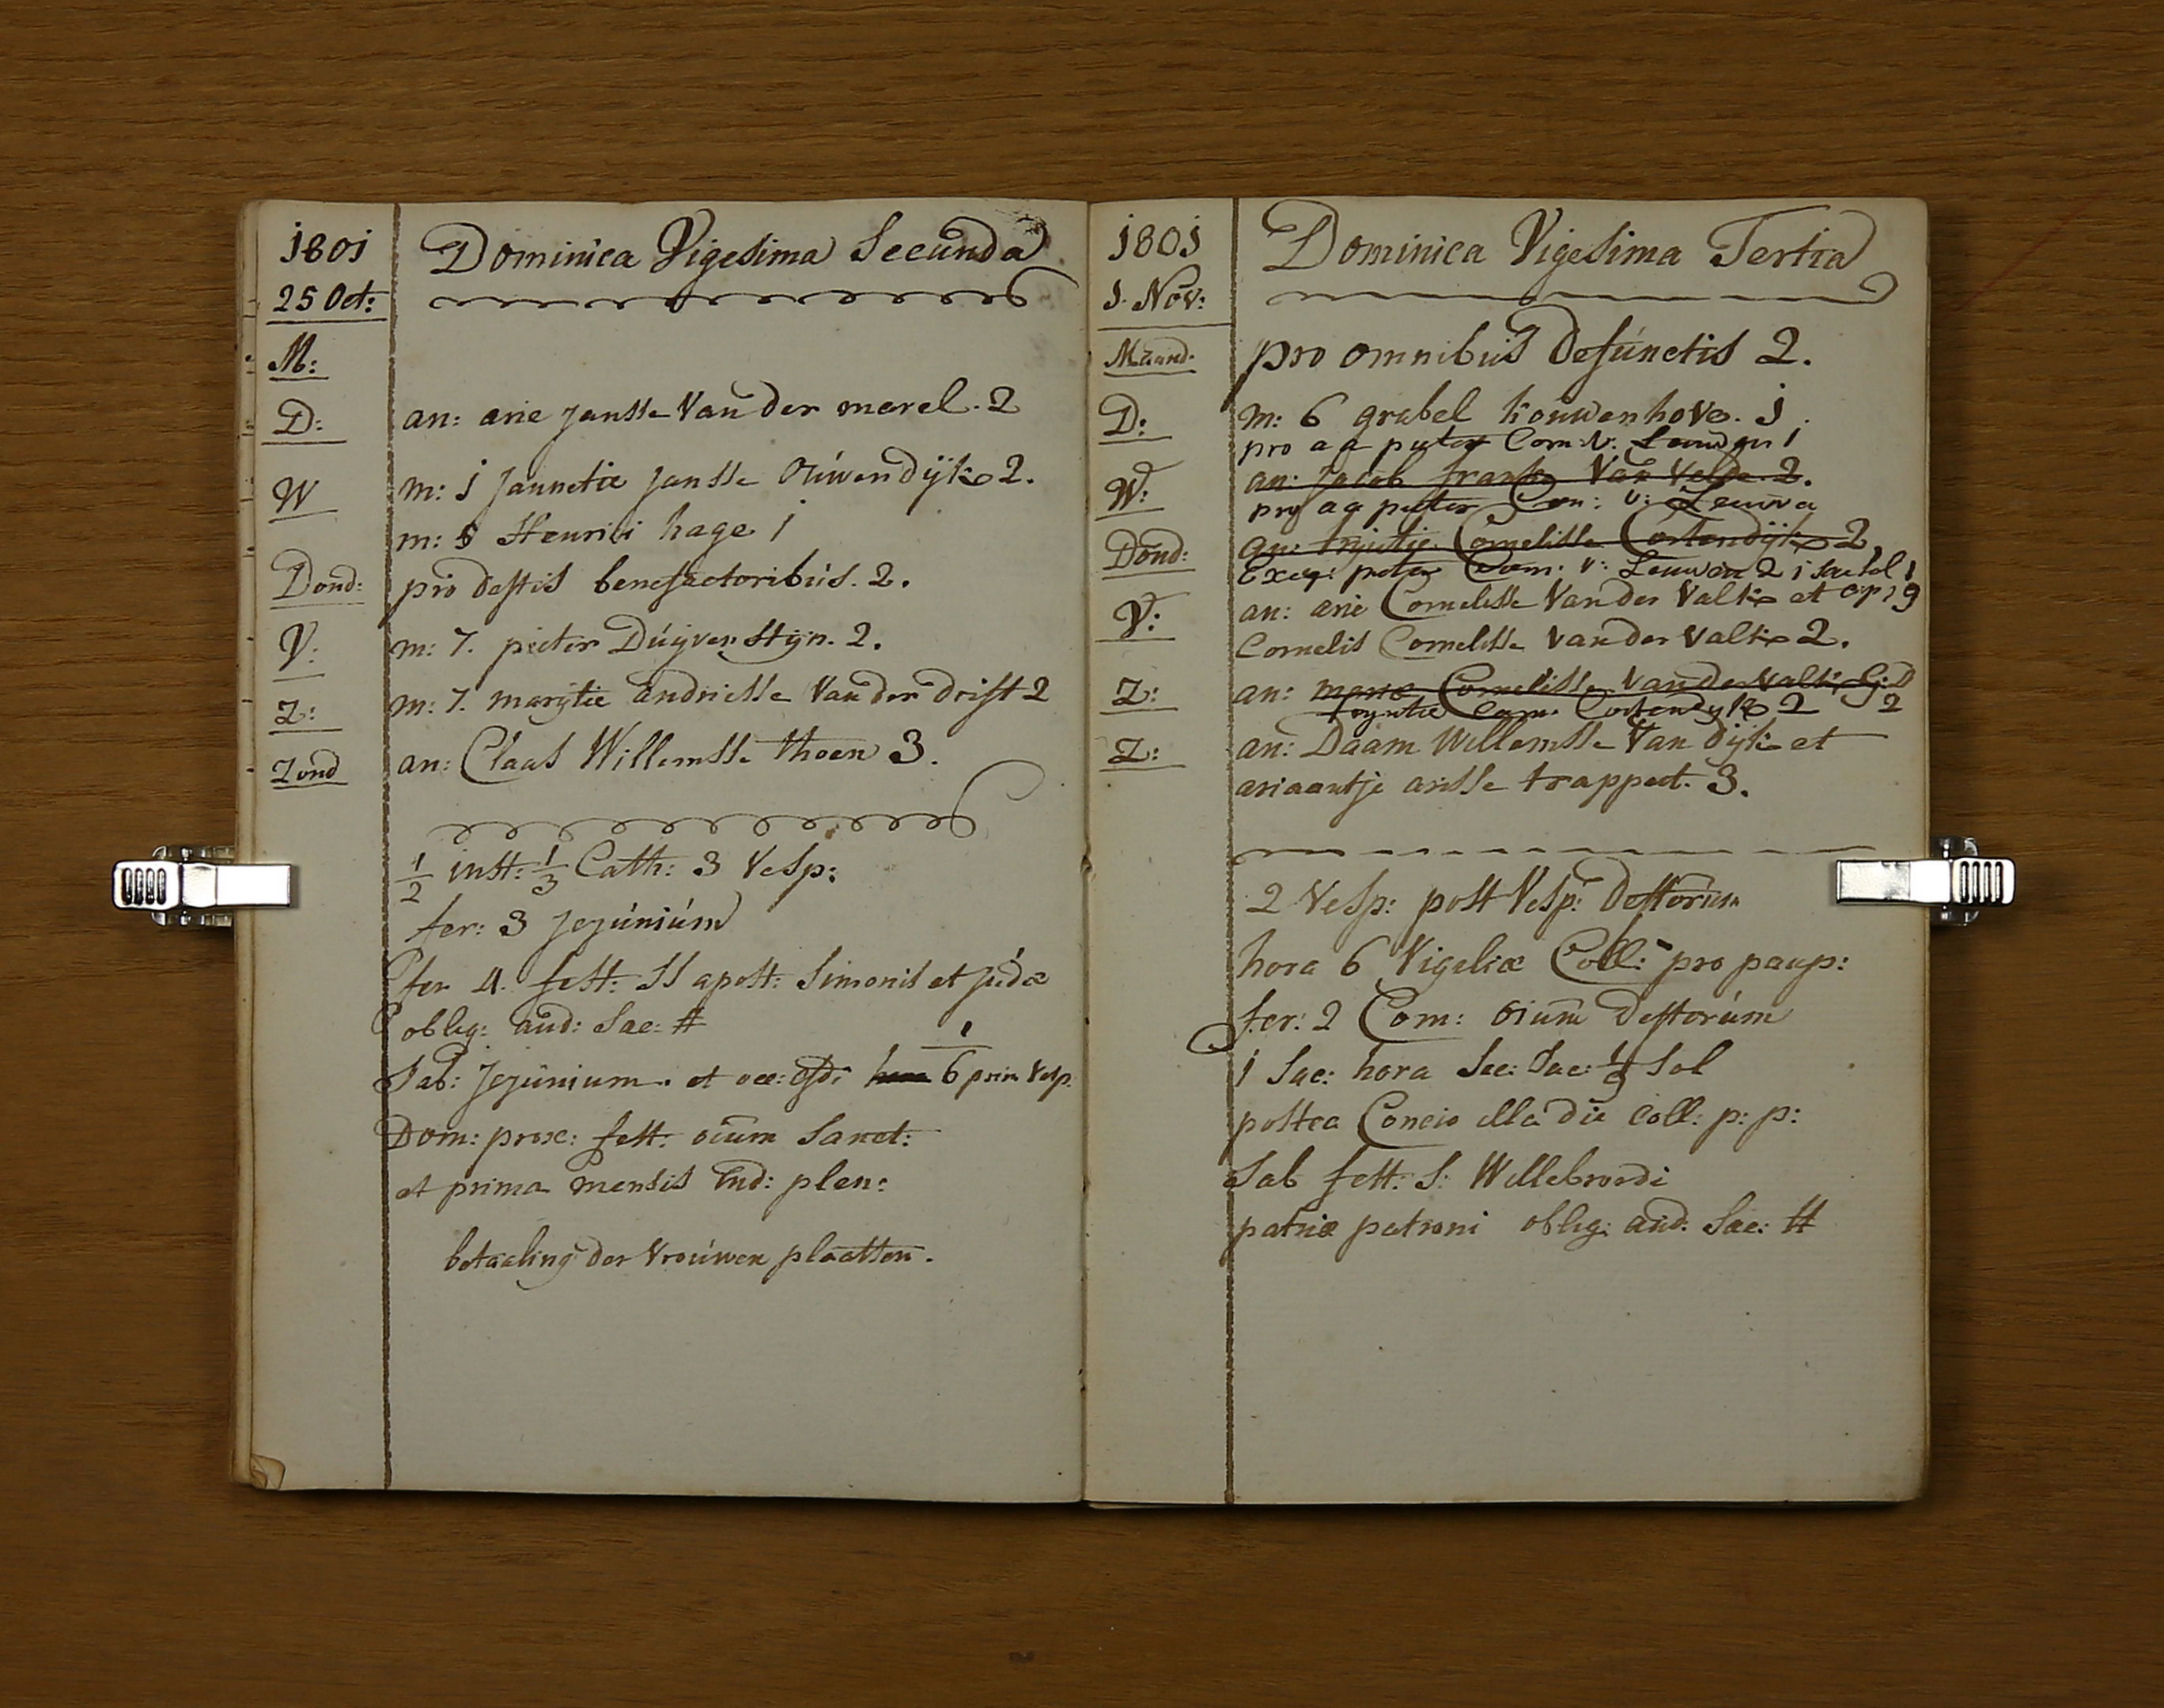 1801
25 Oct:
Dominica Vigesima Secunda
M:
D: an: arie Jansse Van der marel. 2
W m: 1 Jannetie Jansse Ouwendijk 2.
m: 8 Henrici hage 1
Dond: pro deftis benefactoribus. 2.
V: m: 7. pieter Duyvenstyn. 2.
Z: m: 7. marijtie andriesse Van der drift 2
Zond an: Claas Willemsse thoen 3.
1/2 inst: 1/3 Cath: 3 Vesp:
fer: 3 jejunium
fer 4. fest: SS apost: Simonis et judæ
oblig: aud: Sac: #
Sab: Jejunium. et occ: 6 prim Vesp.
Dom: prox: fest: oium Sanct:
et prima mensis Ind: plen:
betaaling der Vrouwen plaatsen.
1801
1. Nov:
Dominica Vigesima Tertia
Maand. pro omnibus defunctis 2.
D: m: 6 grabel kouwenhove. 1.
pro aa pieter Corn: V. Leeuwen 1
W: an: Jacob franse Van Velde 2.
pro aa pieter Corn: v: Leeuwe
Dond: an: Cornelisse Cortendijk 2,
Exeq: pieter Corn: v: Leeuwen 2
V: an: arie Cornelisse Van der Valk et
Cornelis Cornelisse van der Valk 2.
Z: an: Cornelisse van der Valk
Corn: Cortendyk 2 2
Z: an: Daam Willemsse Van dijk et
ariaantje arisse trappert. 3.
2 Vesp: post Vesp: deftorum
hora 6 Vigeliæ Coll: pro paup:
fer: 2 Com: oium deftorum
1 Sac: hora Sec: Sac: Sol
postea Concio illa die coll: p: p:
Sab fest: S: Willebrordi
patriæ patroni oblig: aud. Sac: #